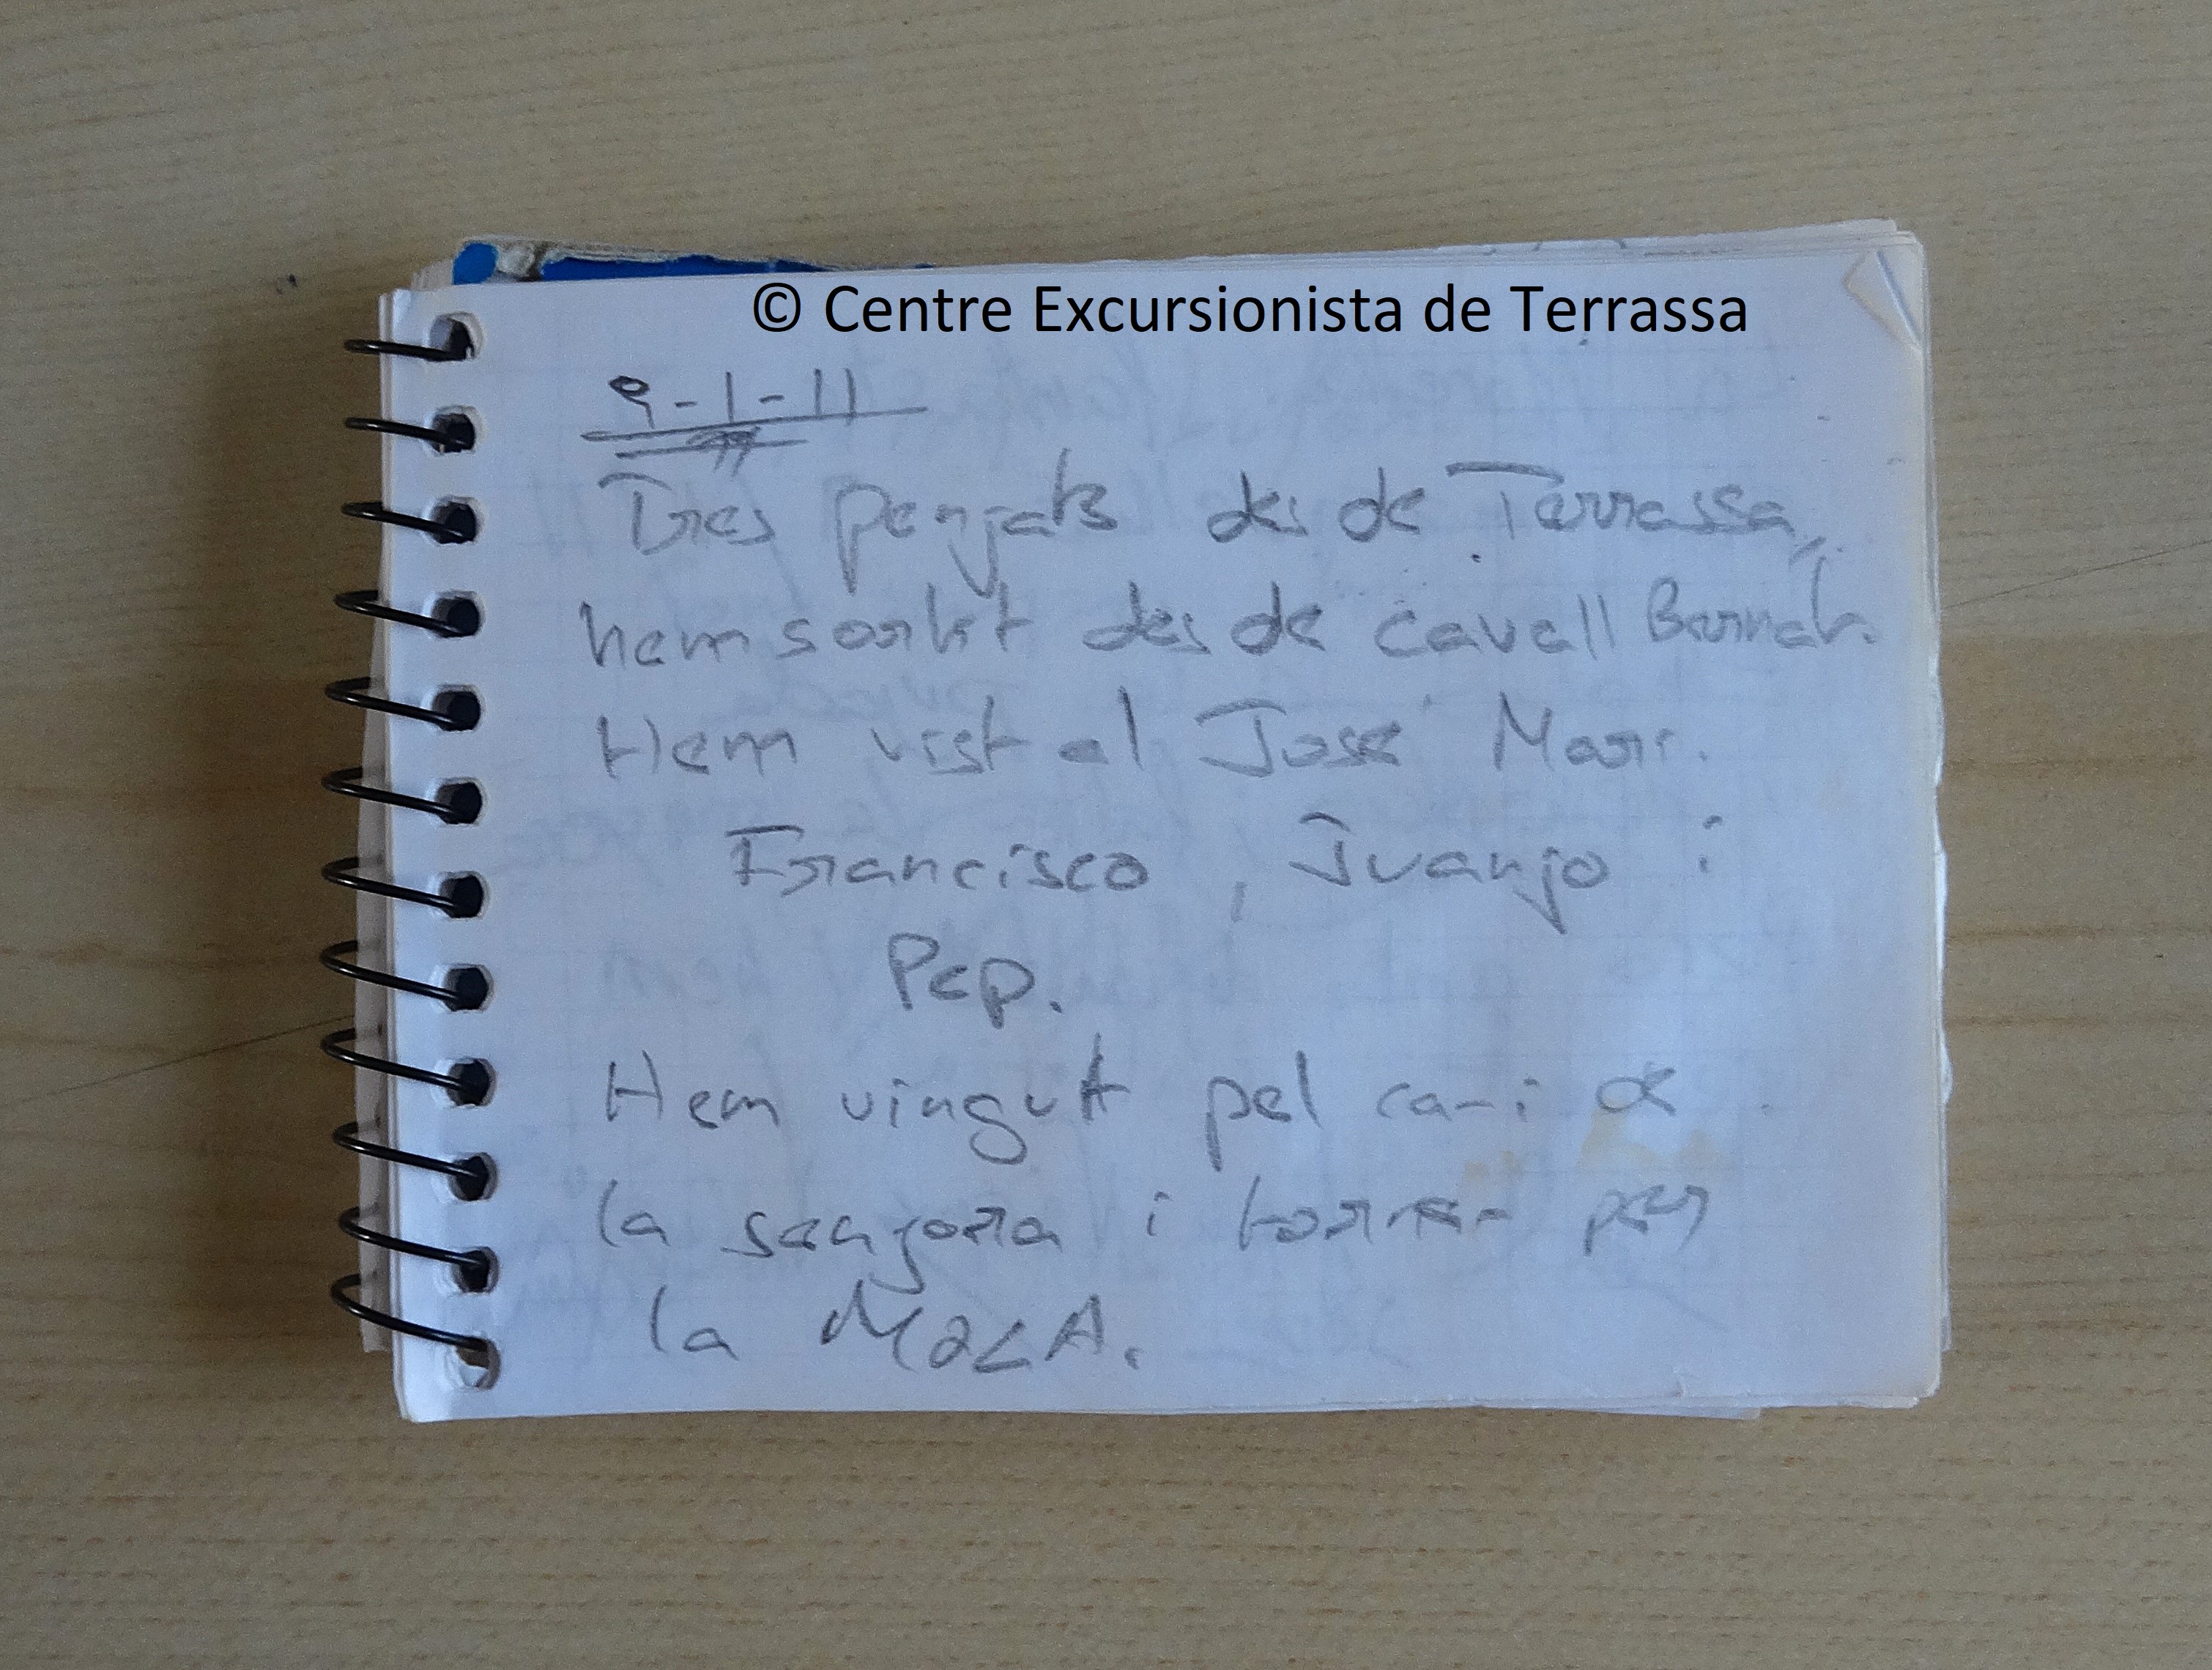 © Centre Excursionista de Terrassa
9-1-11
Tres penjats des de Terrassa,
hem sortit des de Cavall Bernat.
Hem vist al José Mari.
Francisco, Juanjo i
Pep.
Hem vingut pel camí de
la senyora i tornem per
la MOLA.